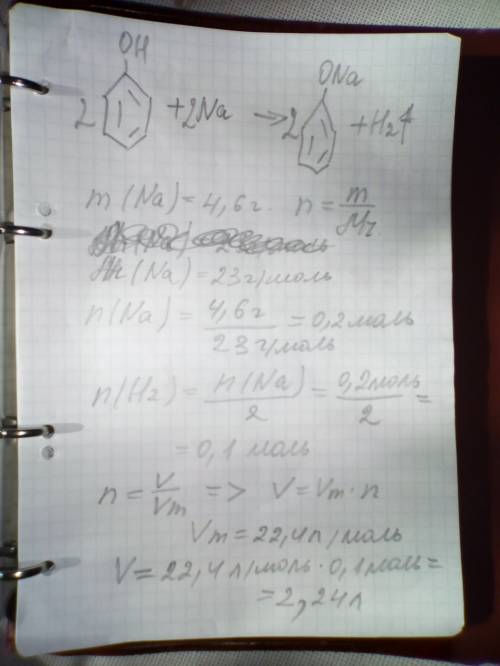 OH
ONa
2 + 2Na → 2 + H₂↑
m (Na) = 4,6 г. n = m/Mr
Mr (Na) = 23 г/моль
n(Na) = 4,6 г / 23 г/моль = 0,2 моль
n(H₂) = n(Na) / 2 = 0,2 моль / 2 =
= 0,1 моль
n = V/Vm => V = Vm · n
Vm = 22,4 л/моль
V = 22,4 л/моль · 0,1 моль =
= 2,24 л